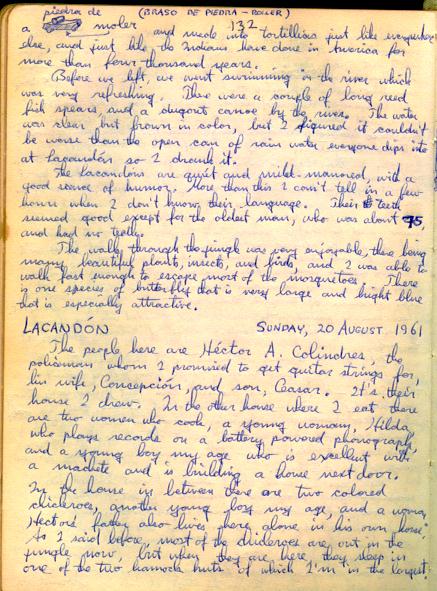 piedra de (BRASO DE PIEDRA - ROLLER)
132
a moler and made into tortillas just like everywhere
else, and just like the Indians have done in America for
more than four thousand years.
Before we left, we went swimming in the river which
was very refreshing. There were a couple of long reed
fish spears, and a dugout canoe by the river. The water
was clear but brown in color, but I figured it couldn't
be worse than the open can of rain water everyone dips into
at Lacandón so I drank it.
The Lacandons are quiet and mild-mannered, with a
good sense of humor. More than this I can't tell in a few
hours when I don't know their language. Their teeth
seemed good except for the oldest man, who was about 45,
and had no teeth.
The walk through the jungle was very enjoyable, there being
many beautiful plants, insects, and birds, and I was able to
walk fast enough to escape most of the mosquetoes. There
is one species of butterfly that is very large and bright blue
that is especially attractive.
LACANDÓN SUNDAY, 20 AUGUST 1961
The people here are Héctor A. Colindres, the
policeman whom I promised to get guitar strings for,
his wife, Concepción, and son, Ceasar. It's their
house I drew. In the other house where I eat there
are two women who cook, a young woman, Hilda,
who plays records on a battery powered phonograph,
and a young boy my age who is excellent with
a machete and is building a house next door.
In the house in between there are two colored
chicleros, another young boy my age, and a woman.
Hector's father also lives here alone in his own house.
As I said before, most of the chicleros are out in the
jungle now, but when they are here they sleep in
one of the two hammock huts of which I'm in the largest.